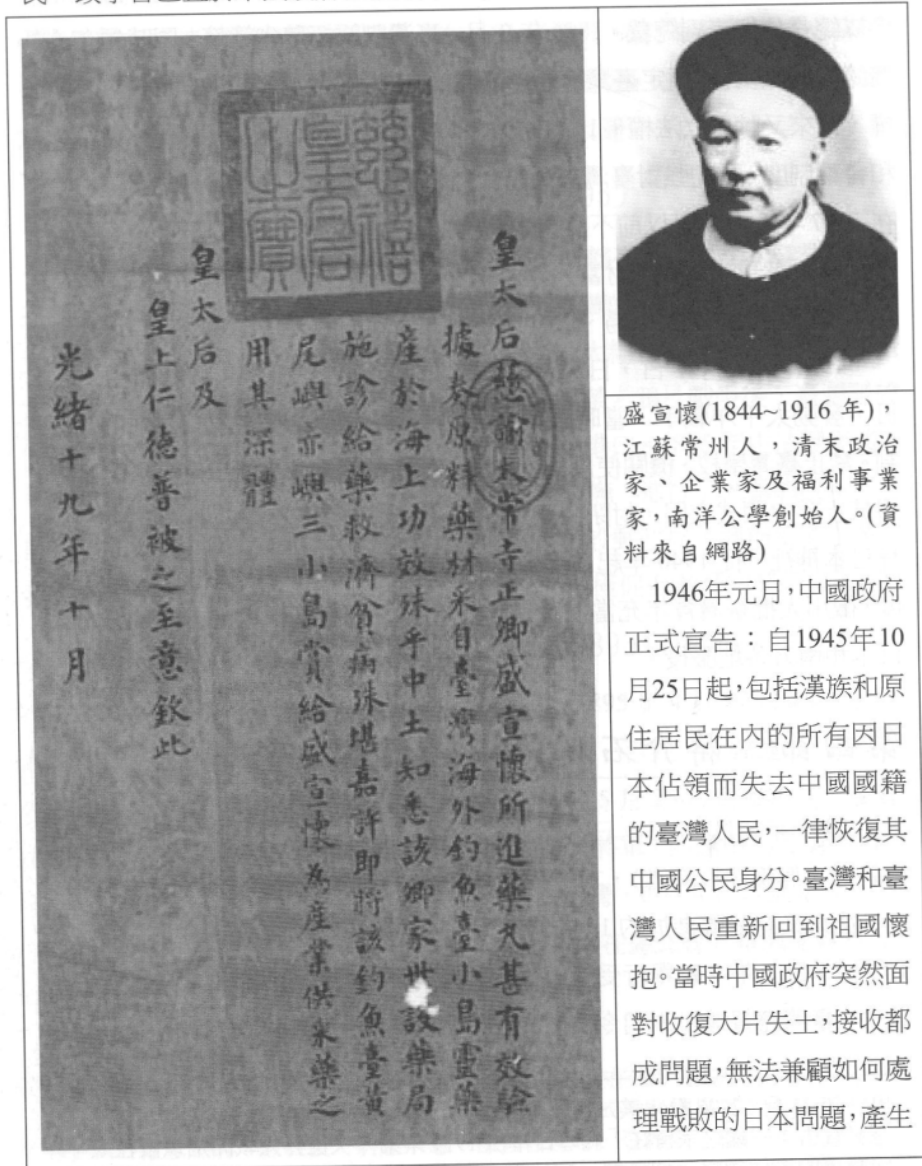 慈禧
皇后
之寶
皇太后慈諭太常寺正卿盛宣懷所進藥丸甚有效驗
據奏原料藥材采自臺灣海外釣魚臺小島靈藥
產於海上功效殊乎中土知悉該卿家世設藥局
施診給藥救濟貧病殊堪嘉許即將該釣魚臺黃
尾嶼赤嶼三小島賞給盛宣懷為產業供采藥之
用其深體
皇太后及
皇上仁德普被之至意欽此
光緒十九年十月
盛宣懷(1844~1916 年)，
江蘇常州人，清末政治
家、企業家及福利事業
家，南洋公學創始人。(資
料來自網路)
1946年元月，中國政府
正式宣告：自1945年10
月25日起，包括漢族和原
住居民在內的所有因日
本佔領而失去中國國籍
的臺灣人民，一律恢復其
中國公民身分。臺灣和臺
灣人民重新回到祖國懷
抱。當時中國政府突然面
對收復大片失土，接收都
成問題，無法兼顧如何處
理戰敗的日本問題，產生